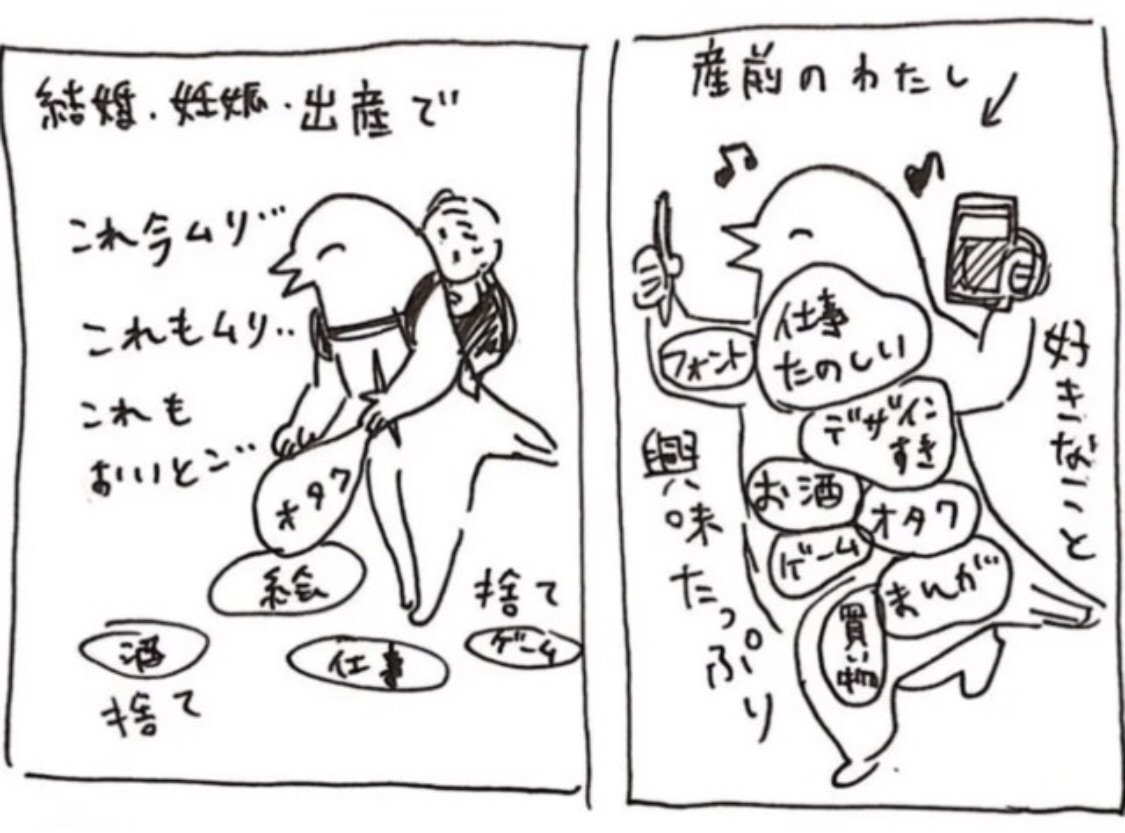 産前のわたし
仕事
たのしい
フォント
デザイン
すき
お酒
オタク
ゲーム
まんが
買い物
好きなこと
興味たっぷり
結婚・妊娠・出産で
これ今ムリ…
これもムリ..
これも
おいとこ…
オタク
絵
酒
仕事
ゲーム
捨て
捨て